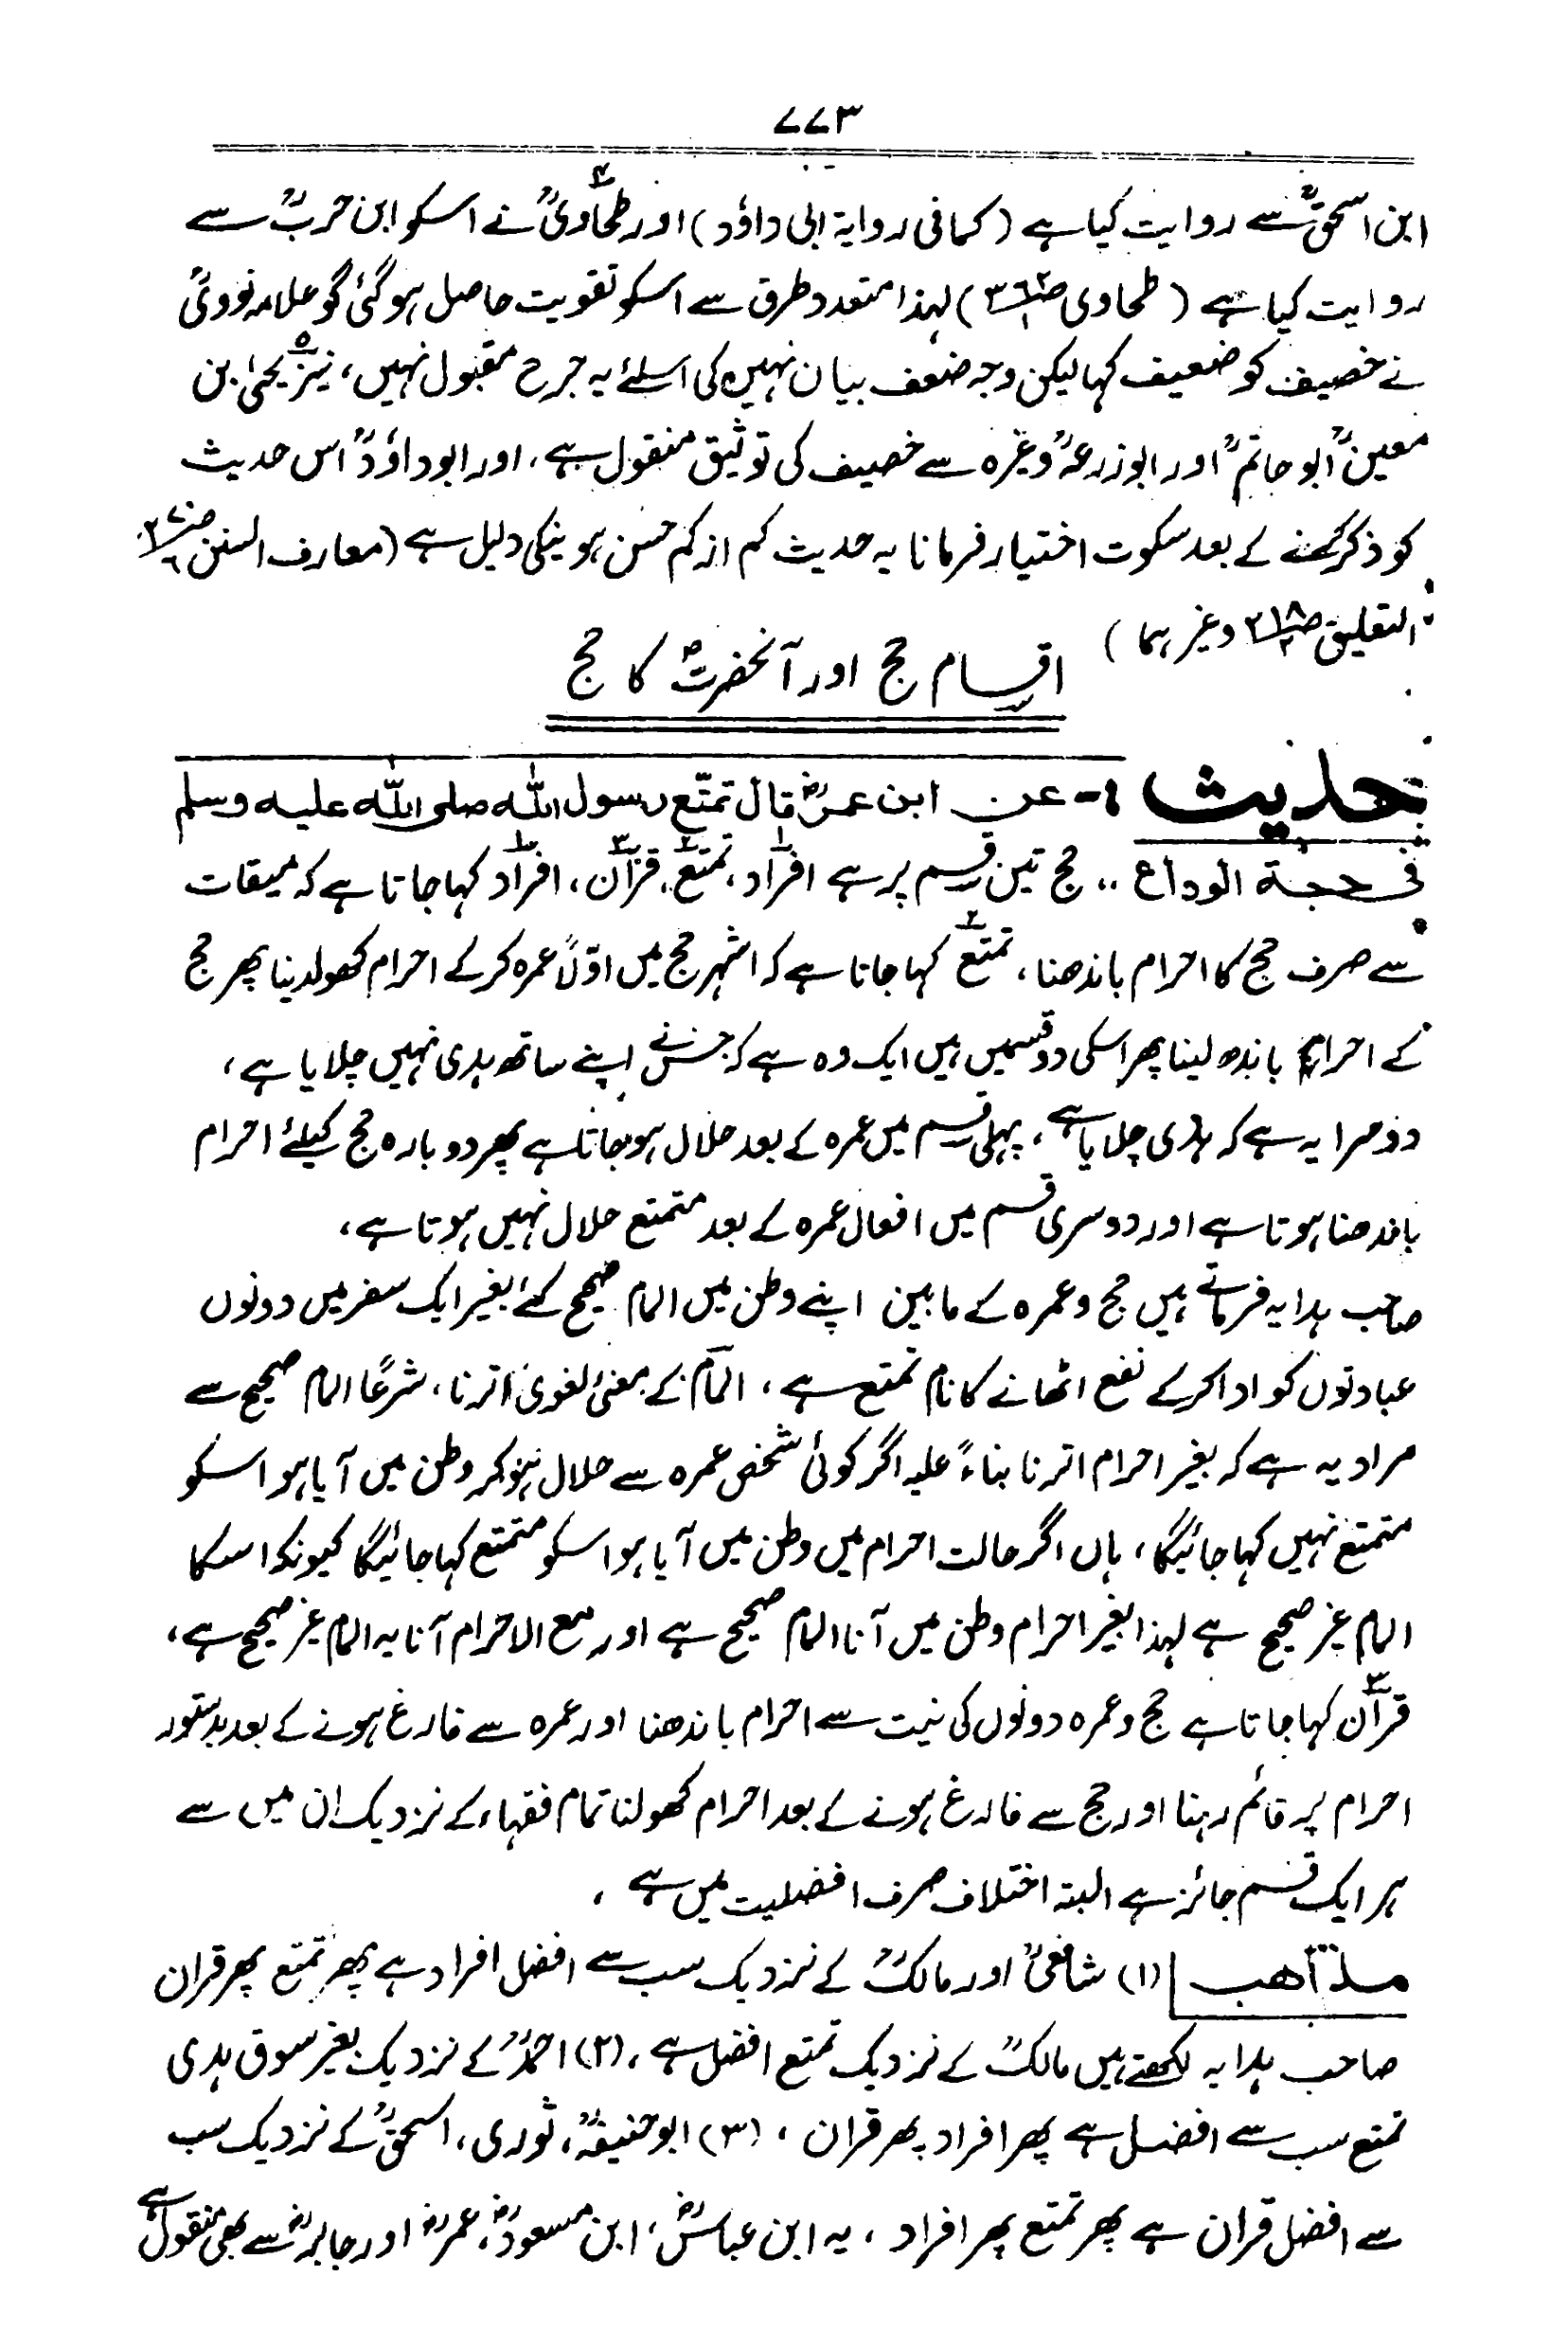 ۷۷۳
ابن اسحٰقؒ سے روایت کیا ہے (کما فی روایۃ ابی داؤد) اور طحاویؒ نے اسکو ابن حربؒ سے
روایت کیا ہے (طحاوی ) لہذا متعدد طرق سے اسکو تقویت حاصل ہوگئی گو علامہ نوویؒ
نے خصیف کو ضعیف کہا لیکن وجہ ضعف بیان نہیں کی اسلئے یہ جرح مقبول نہیں، نیز یحیٰی بن
معینؒ ابو حاتمؒ اور ابوزرعہؒ وغیرہ سے خصیف کی توثیق منقول ہے، اور ابوداؤدؒ اس حدیث
کو ذکر کرنے کے بعد سکوت اختیار فرمانا یہ حدیث کم از کم حسن ہونیکی دلیل ہے (معارف السنن
التعلیق وغیرہما)
اقسام حج اور آنحضرتؐ کا حج
حدیث :- عن ابن عمرؓ قال تمتّع رسول اللّٰہ صلی اللّٰہ علیہ وسلم
فی حجۃ الوداع .. حج تین قسم پر ہے افراد، تمتع، قران، افراد کہا جاتا ہے کہ میقات
سے صرف حج کا احرام باندھنا، تمتع کہا جاتا ہے کہ اشہر حج میں اوّلاً عمرہ کرکے احرام کھولدینا پھر حج
کے احرام باندھ لینا پھر اسکی دو قسمیں ہیں ایک وہ ہے کہ جس نے اپنے ساتھ ہدی نہیں چلایا ہے،
دوسرا یہ ہے کہ ہدی چلایا ہے، پہلی قسم میں عمرہ کے بعد حلال ہوجاتا ہے پھر دوبارہ حج کیلئے احرام
باندھنا ہوتا ہے اور دوسری قسم میں افعال عمرہ کے بعد متمتع حلال نہیں ہوتا ہے،
صاحب ہدایہ فرماتے ہیں حج وعمرہ کے مابین اپنے وطن میں المام صحیح کئے بغیر ایک سفر میں دونوں
عبادتوں کو ادا کرکے نفع اٹھانے کا نام تمتع ہے، المام کے معنیٔ لغوی اترنا، شرعًا المام صحیح سے
مراد یہ ہے کہ بغیر احرام اترنا بناءً علیہ اگر کوئی شخص عمرہ سے حلال ہوکر وطن میں آیا ہو اسکو
متمتع نہیں کہا جائیگا، ہاں اگر حالت احرام میں وطن میں آیا ہو اسکو متمتع کہا جائیگا کیونکہ اسکا
المام غیر صحیح ہے لہذا بغیر احرام وطن میں آنا المام صحیح ہے اور مع الاحرام آنا یہ المام غیر صحیح ہے،
قران کہا جاتا ہے حج وعمرہ دونوں کی نیت سے احرام باندھنا اور عمرہ سے فارغ ہونے کے بعد بدستور
احرام پر قائم رہنا اور حج سے فارغ ہونے کے بعد احرام کھولنا تمام فقہاء کے نزدیک ان میں سے
ہر ایک قسم جائز ہے البتہ اختلاف صرف افضلیت میں ہے،
مذاھب (۱) شافعیؒ اور مالکؒ کے نزدیک سب سے افضل افراد ہے پھر تمتع پھر قران
صاحب ہدایہ لکھتے ہیں مالکؒ کے نزدیک تمتع افضل ہے، (۲) احمدؒ کے نزدیک بغیر سوق ہدی
تمتع سب سے افضل ہے پھر افراد پھر قران، (۳) ابوحنیفہؒ، ثوری، اسحٰقؒ کے نزدیک سب
سے افضل قران ہے پھر تمتع پھر افراد، یہ ابن عباسؓ، ابن مسعودؓ، عمرؓ اور جابرؓ سے بھی منقول ہے